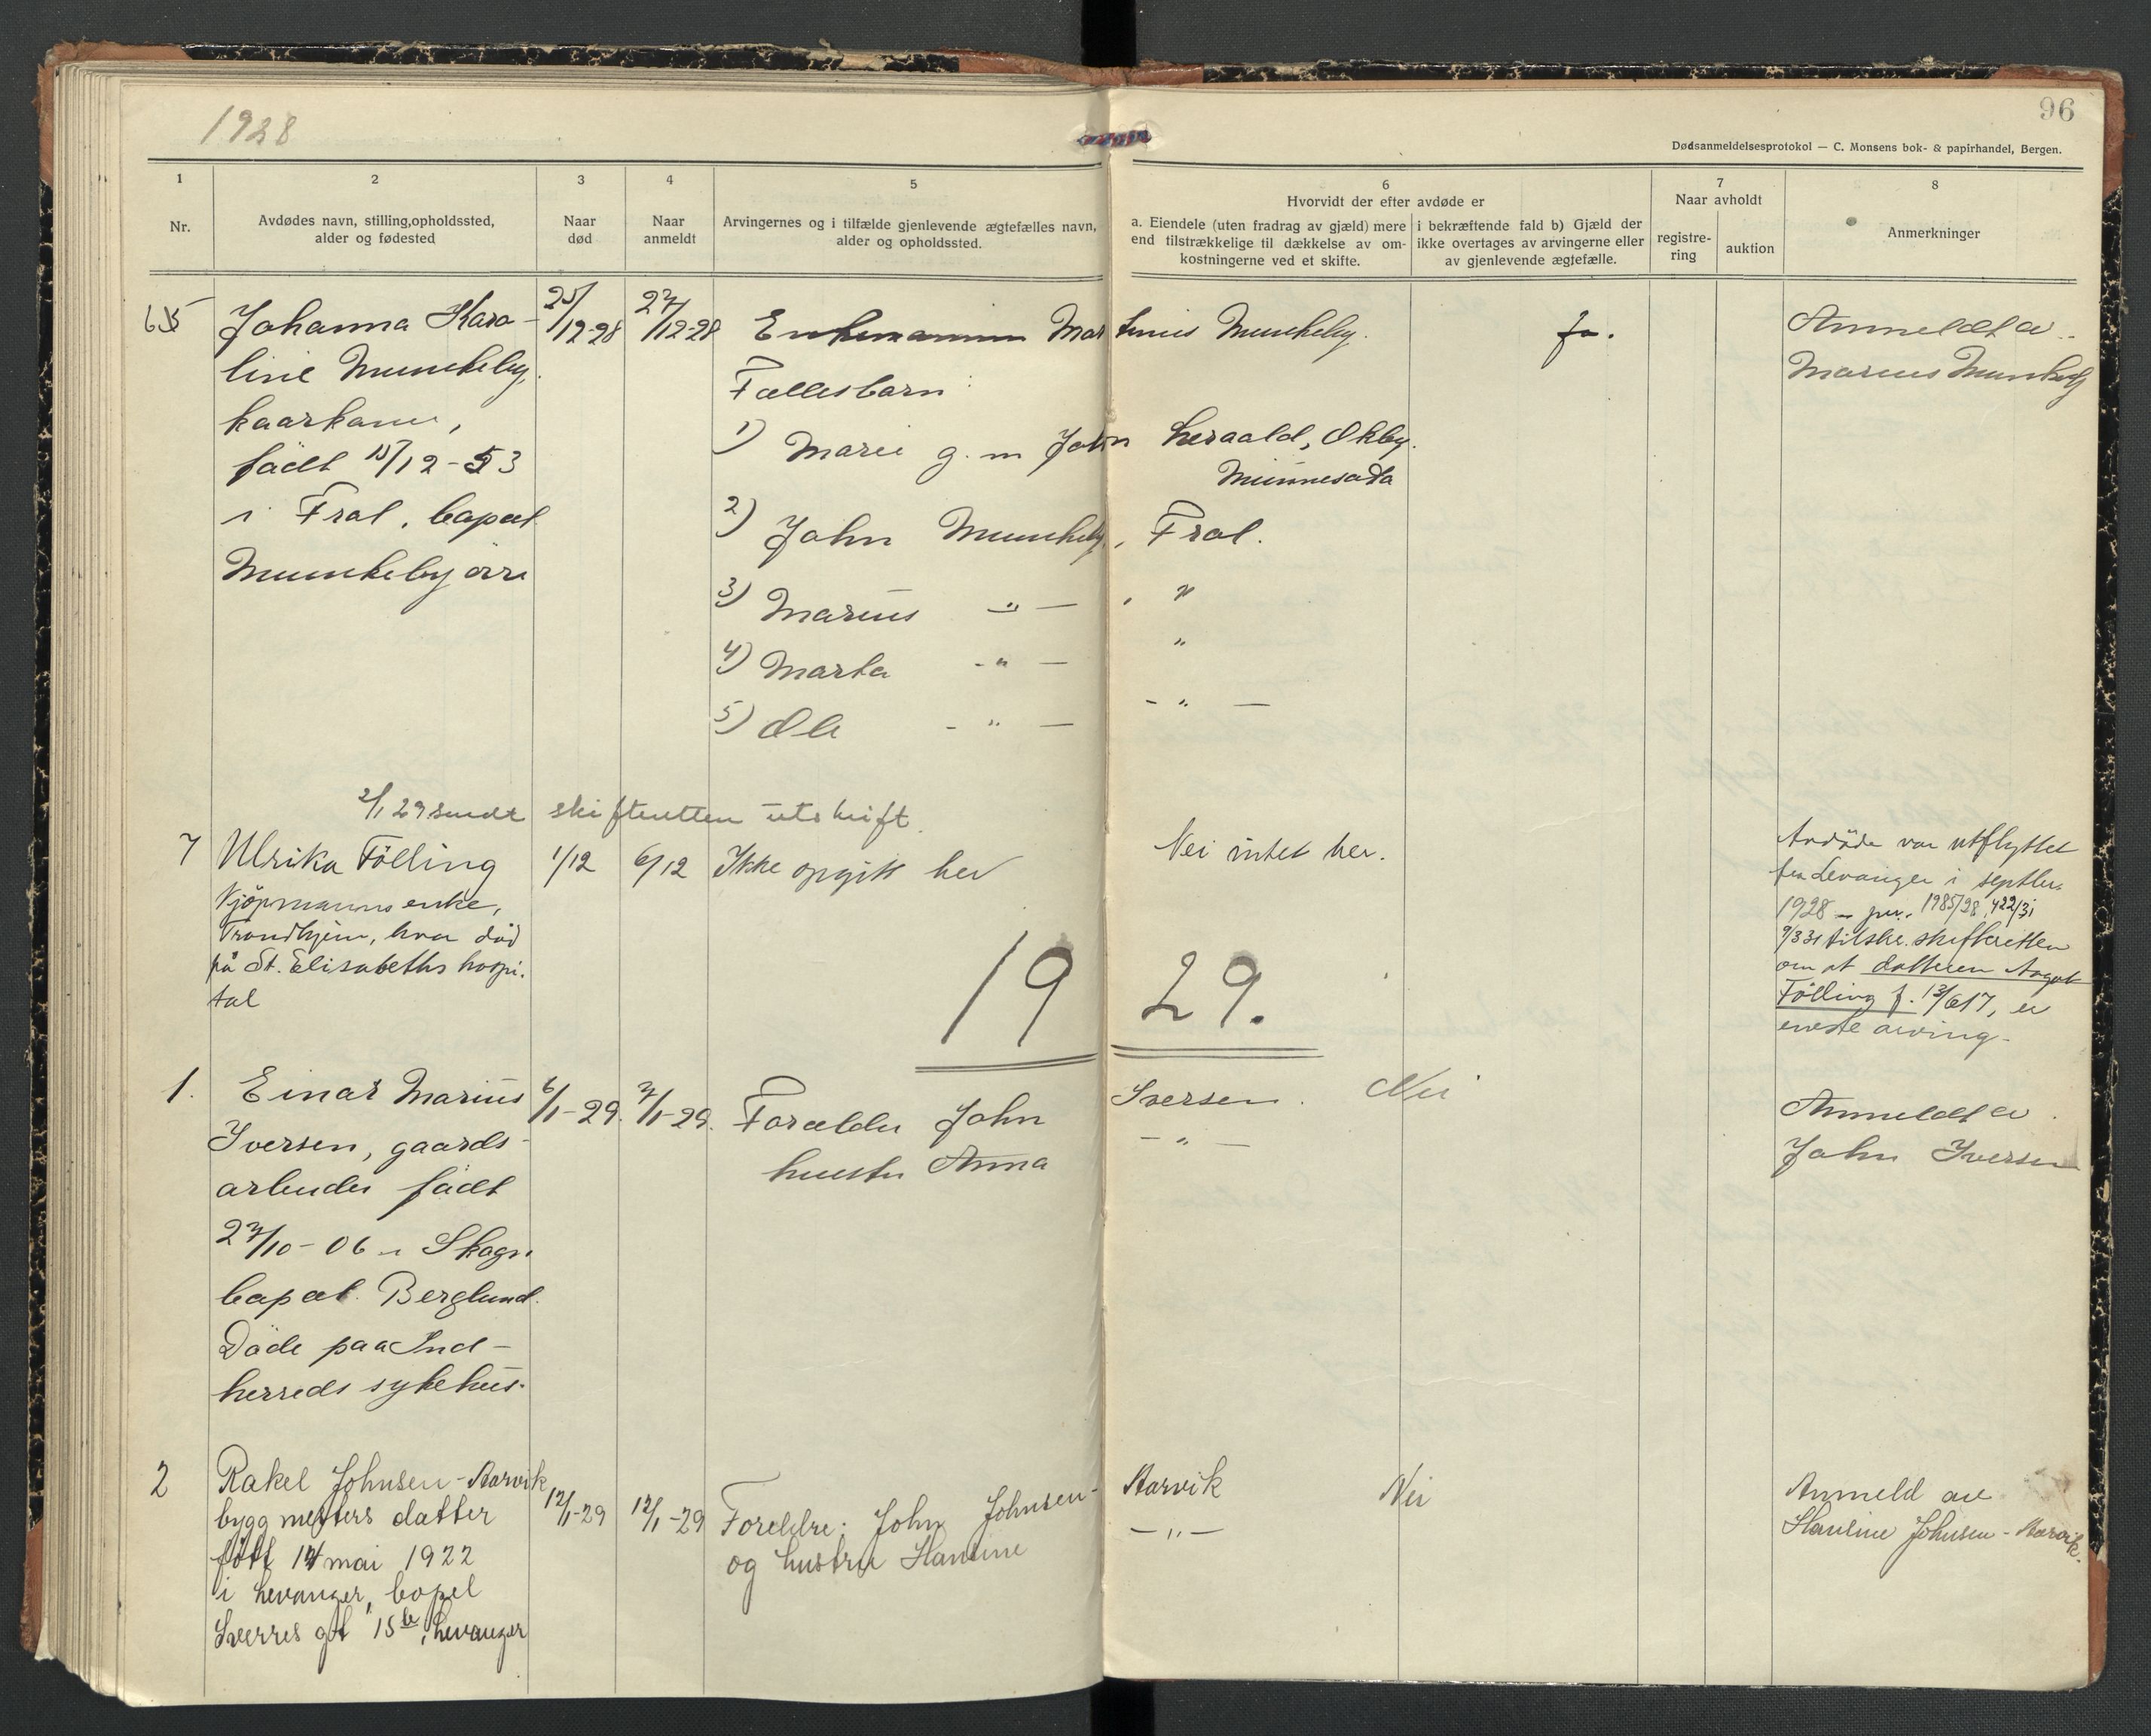 1928
96
Dødsanmeldelsesprotokol — C. Monsens bok- & papirhandel, Bergen.
1
Nr.
2
Avdødes navn, stilling, opholdssted,
alder og fødested
3
Naar
død
4
Naar
anmeldt
5
Arvingernes og i tilfælde gjenlevende ægtefælles navn,
alder og opholdssted.
6
Hvorvidt der efter avdøde er
a. Eiendele (uten fradrag av gjæld) mere
end tilstrækkelige til dækkelse av om-
kostningerne ved et skifte.
i bekræftende fald b) Gjæld der
ikke overtages av arvingerne eller
av gjenlevende ægtefælle.
7
Naar avholdt
registre-
ring
auktion
8
Anmerkninger
Johanna Karo-
line Munkeby,
kaarkone,
födt 15/12-53
i Frol, bopæl
Munkeby övre
25/12-28
27/12-28
Enkemannen Martinus Munkeby.
Fællesbarn:
1) Marie g. m John Leraald, Okby.
Minnesota
2) John Munkeby, Frol.
3) Marius -"- , "
4) Marta -"- "
5) Ole -"- -"-
Ja.
Anmeldt av
Marius Munkeby
2/1 29 sendt skifteretten utskrift.
7
Ulrika Fölling
Kjöpmannsenke,
Trondhjem, hvor död
på St. Elisabeths hospi-
tal
1/12
6/12
Ikke opgitt her
Nei intet her.
Avdöde var utflyttet
fra Levanger i septbr.
1928 - jnr. 1985/28, 422/31
9/3 31 tilskr. skifteretten
om at datteren Aagot
Fölling f. 13/6 17, er
eneste arving.
1929.
1.
Einar Marius
Iversen, gaards-
arbeider födt
27/10-06 i Skogn.
bopæl Berglund.
Döde paa Ind-
herreds sykehus.
6/1-29.
7/1-29.
Forælder John Iversen.
hustru Anna -"-
Nei
Anmeldt av
John Iversen
2
Rakel Johnsen-Aarvik
byggmesters datter
født 14 mai 1922
i Levanger, bopel
Sverres gt 15 b, Levanger
12/1-29
12/1-29
Foreldre: John Johnsen-Aarvik
og hustru Hanline -"-
Nei
Anmeld av
Hauline Johnsen-Aarvik.